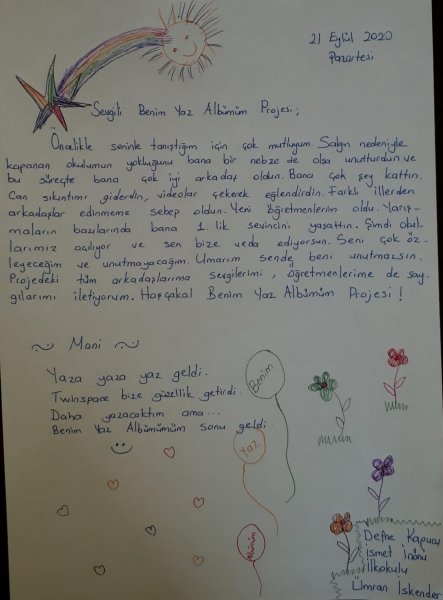 21 Eylül 2020
Pazartesi
Sevgili Benim Yaz Albümüm Projesi;
Öncelikle seninle tanıştığım için çok mutluyum. Salgın nedeniyle
kapanan okulumun yokluğunu bana bir nebze de olsa unutturdun ve
bu süreçte bana çok iyi arkadaş oldun. Bana çok şey kattın.
Can sıkıntımı giderdin, videolar çekerek eğlendirdin. Farklı illerden
arkadaşlar edinmeme sebep oldun. Yeni öğretmenlerim oldu. Yarış-
maların bazılarında bana 1. lik sevincini yaşattın. Şimdi okul-
larımız açılıyor ve sen bize veda ediyorsun. Seni çok öz-
leyeceğim ve unutmayacağım. Umarım sende beni unutmazsın.
Projedeki tüm arkadaşlarıma sevgilerimi, öğretmenlerime de say-
gılarımı iletiyorum. Hoşçakal Benim Yaz Albümüm Projesi!
Mani
Yaza yaza yaz geldi.
Twinspace bize güzellik getirdi.
Daha yazacaktım ama...
Benim Yaz Albümümüm sonu geldi.
Benim
Yaz
Albümüm
Defne Kapucu
İsmet İnönü
İlkokulu
Ümran İskender